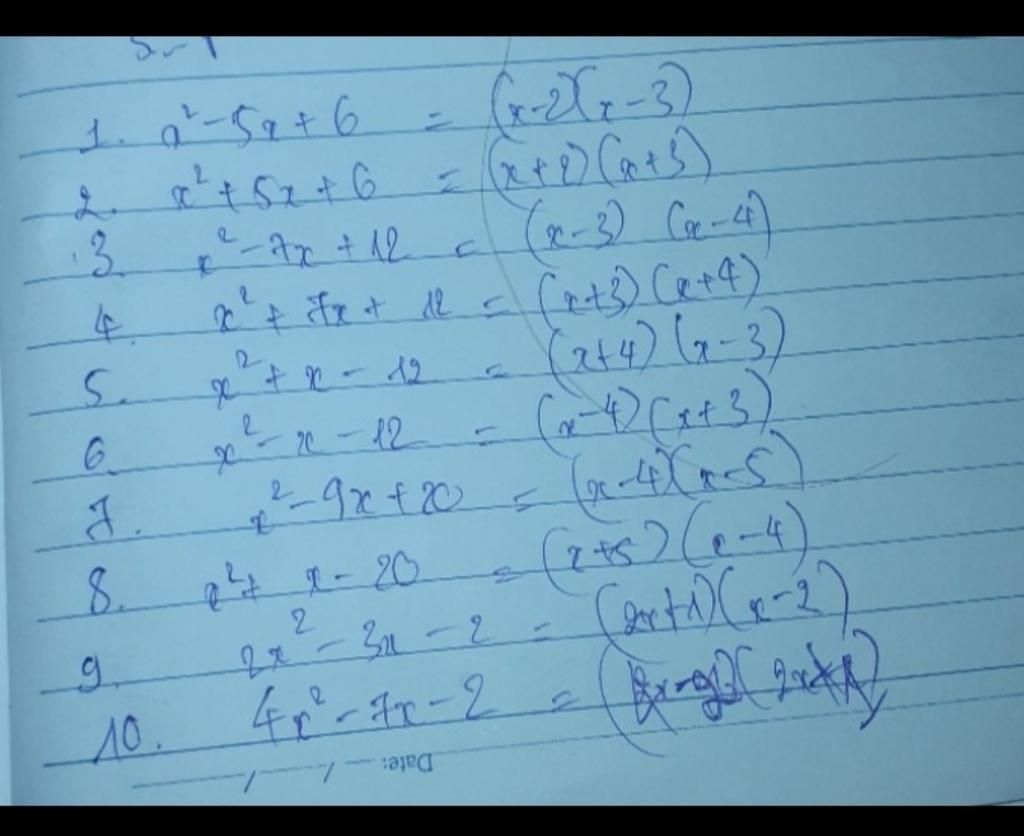 1. x² - 5x + 6 = (x-2)(x-3)
2. x² + 5x + 6 = (x+2)(x+3)
3. x² - 7x + 12 = (x-3) (x-4)
4. x² + 7x + 12 = (x+3)(x+4)
5. x² + x - 12 = (x+4)(x-3)
6. x² - x - 12 = (x-4)(x+3)
7. x² - 9x + 20 = (x-4)(x-5)
8. x² + x - 20 = (x+5)(x-4)
9. 2x² - 3x - 2 = (2x+1)(x-2)
10. 4x² - 7x - 2 =
Date: / /